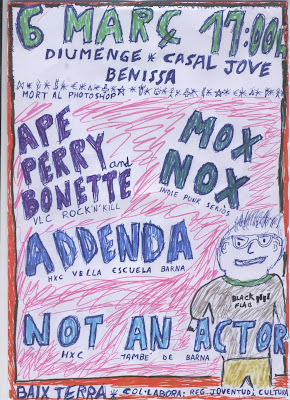 6 MARÇ 17:00h
DIUMENGE * CASAL JOVE
BENISSA
MORT AL PHOTOSHOP
APE
PERRY and
BONETTE
VLC ROCK'N'KILL
MOX
NOX
INDIE PUNK SERIÓS
ADDENDA
HXC VELLA ESCUELA BARNA
BLACK
FLAG
NOT AN ACTOR
HXC TAMBE' DE BARNA
BAIX TERRA * COL·LABORA: REG. JOVENTUD, CULTURA